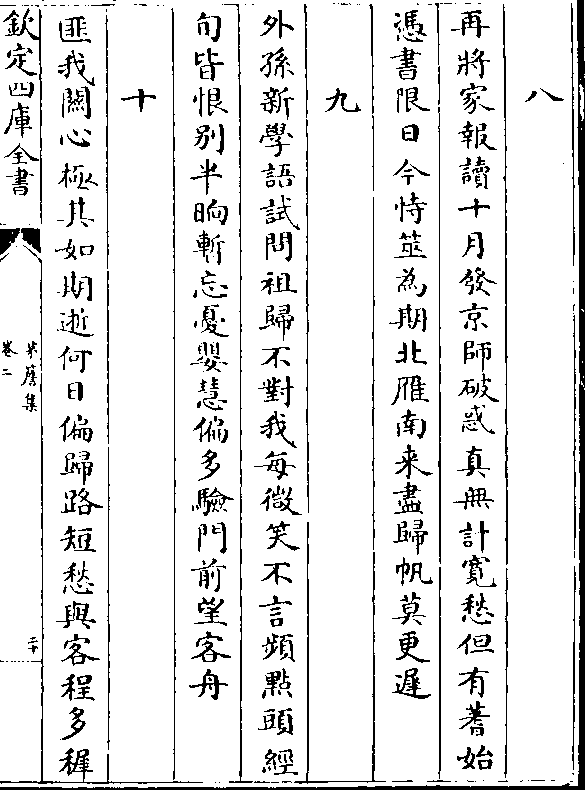 八
再將家報讀十月發京師破惑真無計寛愁但有蓍始
憑書限日今恃筮為期北雁南来盡歸帆莫更遲
九
外孫新學語試問祖歸不對我每微笑不言頻點頭經
旬皆恨别半晌暫忘憂嬰慧偏多驗門前望客舟
十
匪我關心極其如期逝何日偏歸路短愁與客程多穉
欽定四庫全書
卷二
二十